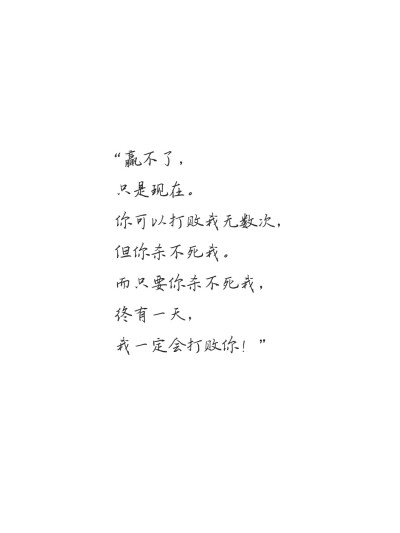 “赢不了，
只是现在。
你可以打败我无数次，
但你杀不死我。
而只要你杀不死我，
终有一天，
我一定会打败你！”